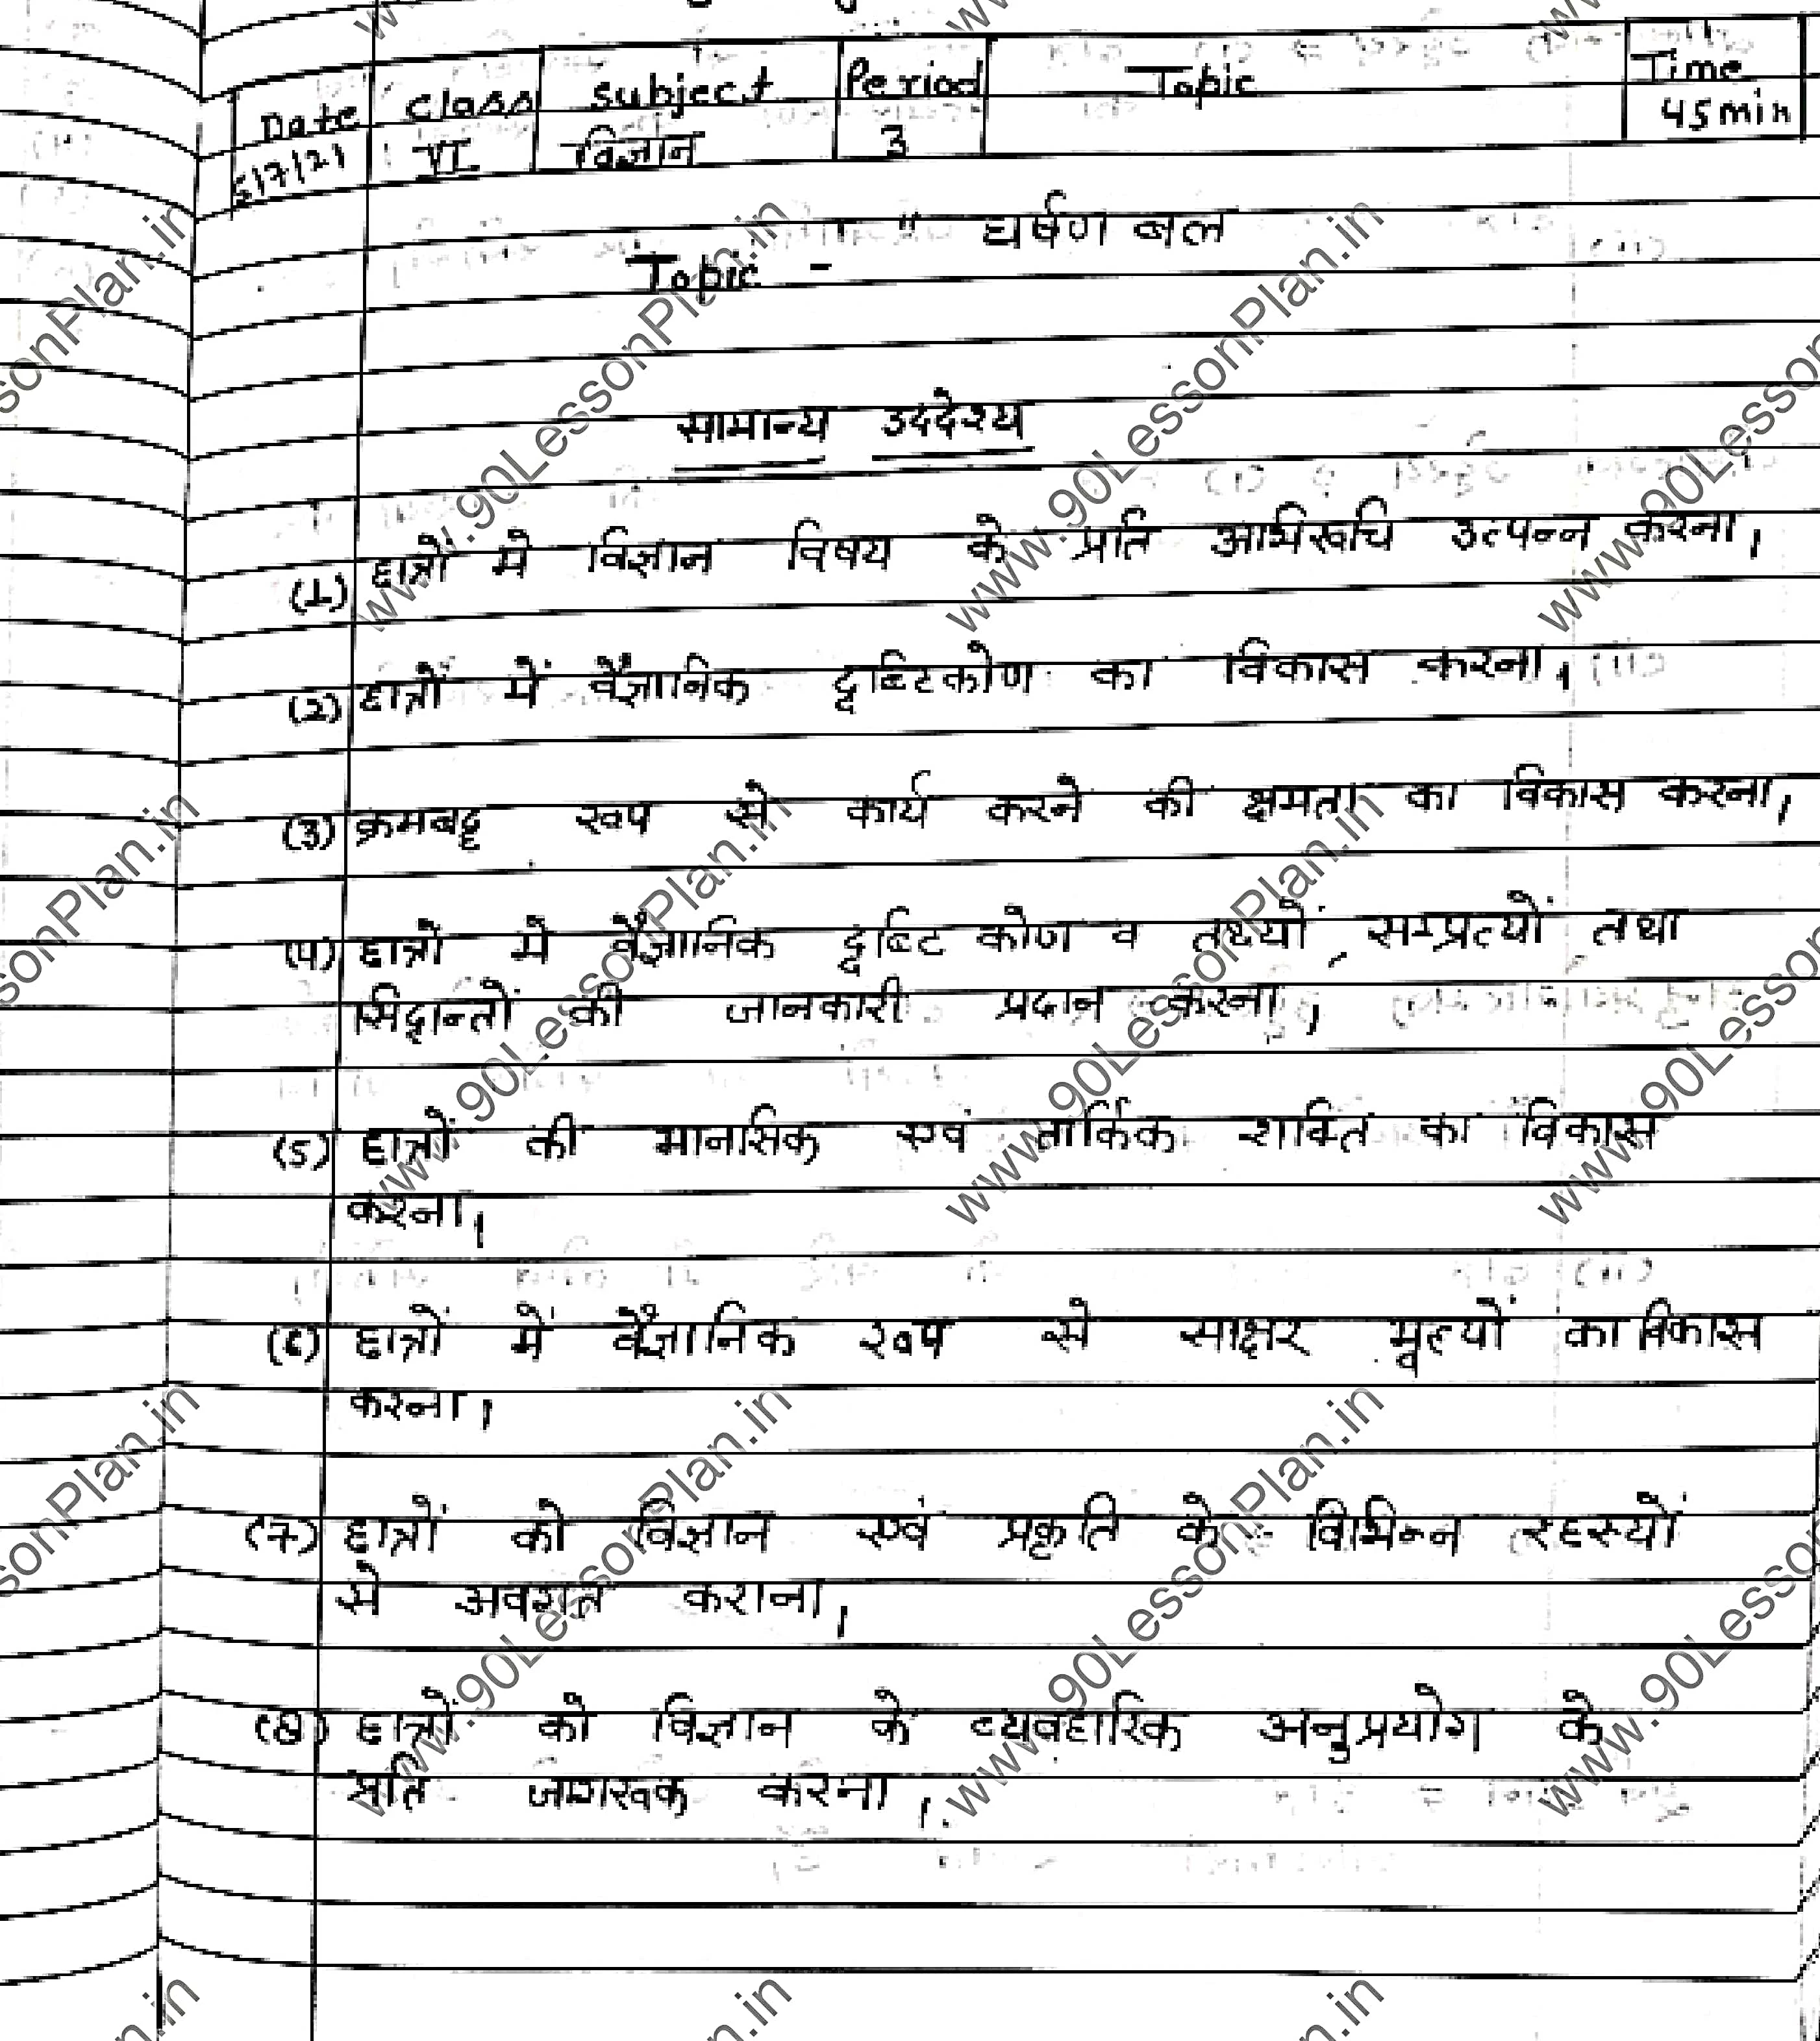 Date Class Subject Period Topic Time
5/7/21 VI विज्ञान 3 45 min
Topic - " घर्षण बल
सामान्य उददेश्य
(1) छात्रों मे विज्ञान विषय के प्रति अभिरूचि उत्पन्न करना।
(2) छात्रों में वैज्ञानिक दृष्टिकोण का विकास करना।
(3) क्रमबद्ध रूप से कार्य करने की क्षमता का विकास करना।
(4) छात्रों मे वैज्ञानिक दृष्टि कोण व तथ्यों, सम्प्रत्यों तथा
सिद्धान्तों की जानकारी प्रदान करना।
(5) छात्रों की मानसिक एवं तार्किक शक्ति का विकास
करना।
(6) छात्रों में वैज्ञानिक रूप से साक्षर मूल्यों का विकास
करना।
(7) छात्रों को विज्ञान एवं प्रकृति के विभिन्न रहस्यों
से अवगत कराना।
(8) छात्रों को विज्ञान के व्यवहारिक अनुप्रयोग के
प्रति जागरूक करना।
www.90LessonPlan.in